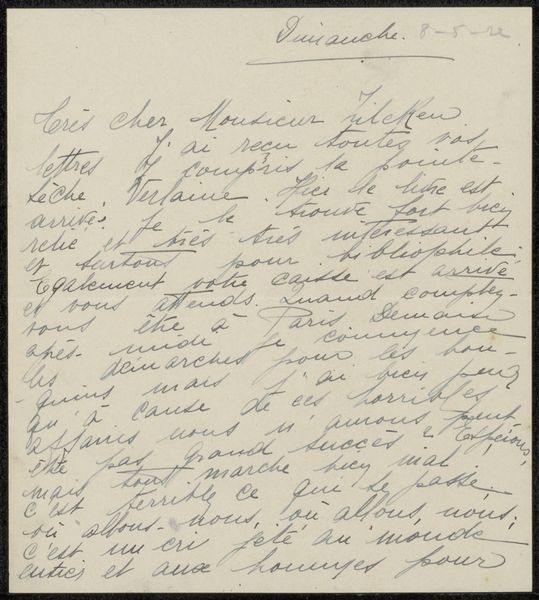 Dimanche. 8-5-22
Très cher Monsieur Zilcken
J'ai reçu toutes vos
lettres y compris la pointe-
sèche, Verlaine. Hier le livre est
arrivé. Je le trouve fort bien
relié et très très intéressant
et surtout pour bibliophile.
Egalement votre caisse est arrivé
et vous attends. Quand comptez-
vous être à Paris Demain
après-midi je commence
les démarches pour les bou-
quins mais j'ai bien peur
qu'à cause de ces horribles
affaires nous n'aurons peut
être pas grand succès. Espérons,
mais tout marche bien mal,
c'est terrible ce qui se passe
où allons-nous, où allons nous,
c'est un cri jeté au monde
entier et aux hommes pour